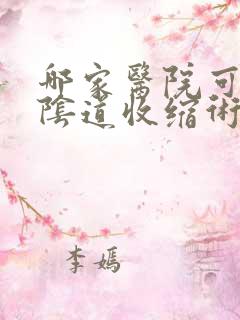 哪家醫院可
陰道收缩術
李嫣